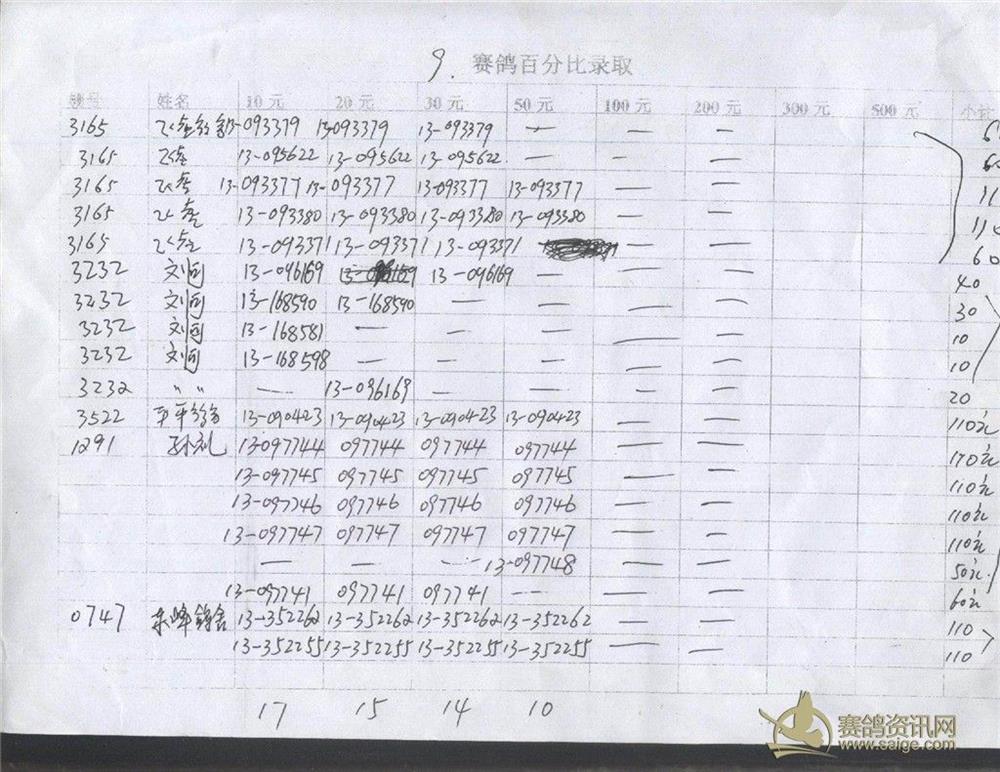 9. 赛鸽百分比录取
棚号 姓名 10元 20元 30元 50元 100元 200元 300元 500元 小计
3165 13-093379 13-093379 13-093379 — — —
3165 13-095622 13-095622 13-095622 — — —
3165 13-093377 13-093377 13-093377 13-093377 — —
3165 13-093380 13-093380 13-093380 13-093380 — —
3165 13-093371 13-093371 13-093371 — — 60
3232 刘同 13-096169 13-096169 13-096169 — — — 40
3232 刘同 13-168590 13-168590 — — — — 30
3232 刘同 13-168581 — — — — — 10
3232 刘同 13-168598 — — — — — 10
3232 〃 〃 — 13-096169 — — — — 20
3522 平平鸽舍 13-090423 13-090423 13-090423 13-090423 — — 110元
1291 孙礼 13-097744 097744 097744 097744 — — 170元
13-097745 097745 097745 097745 — — 110元
13-097746 097746 097746 097746 — — 110元
13-097747 097747 097747 097747 — — 110元
— — — 13-097748 — — 50元
13-097741 097741 097741 — — — 60元
0747 东峰鸽舍 13-352262 13-352262 13-352262 13-352262 — — 110
13-352255 13-352255 13-352255 13-352255 — — 110
17 15 14 10
赛鸽资讯网
www.saige.com